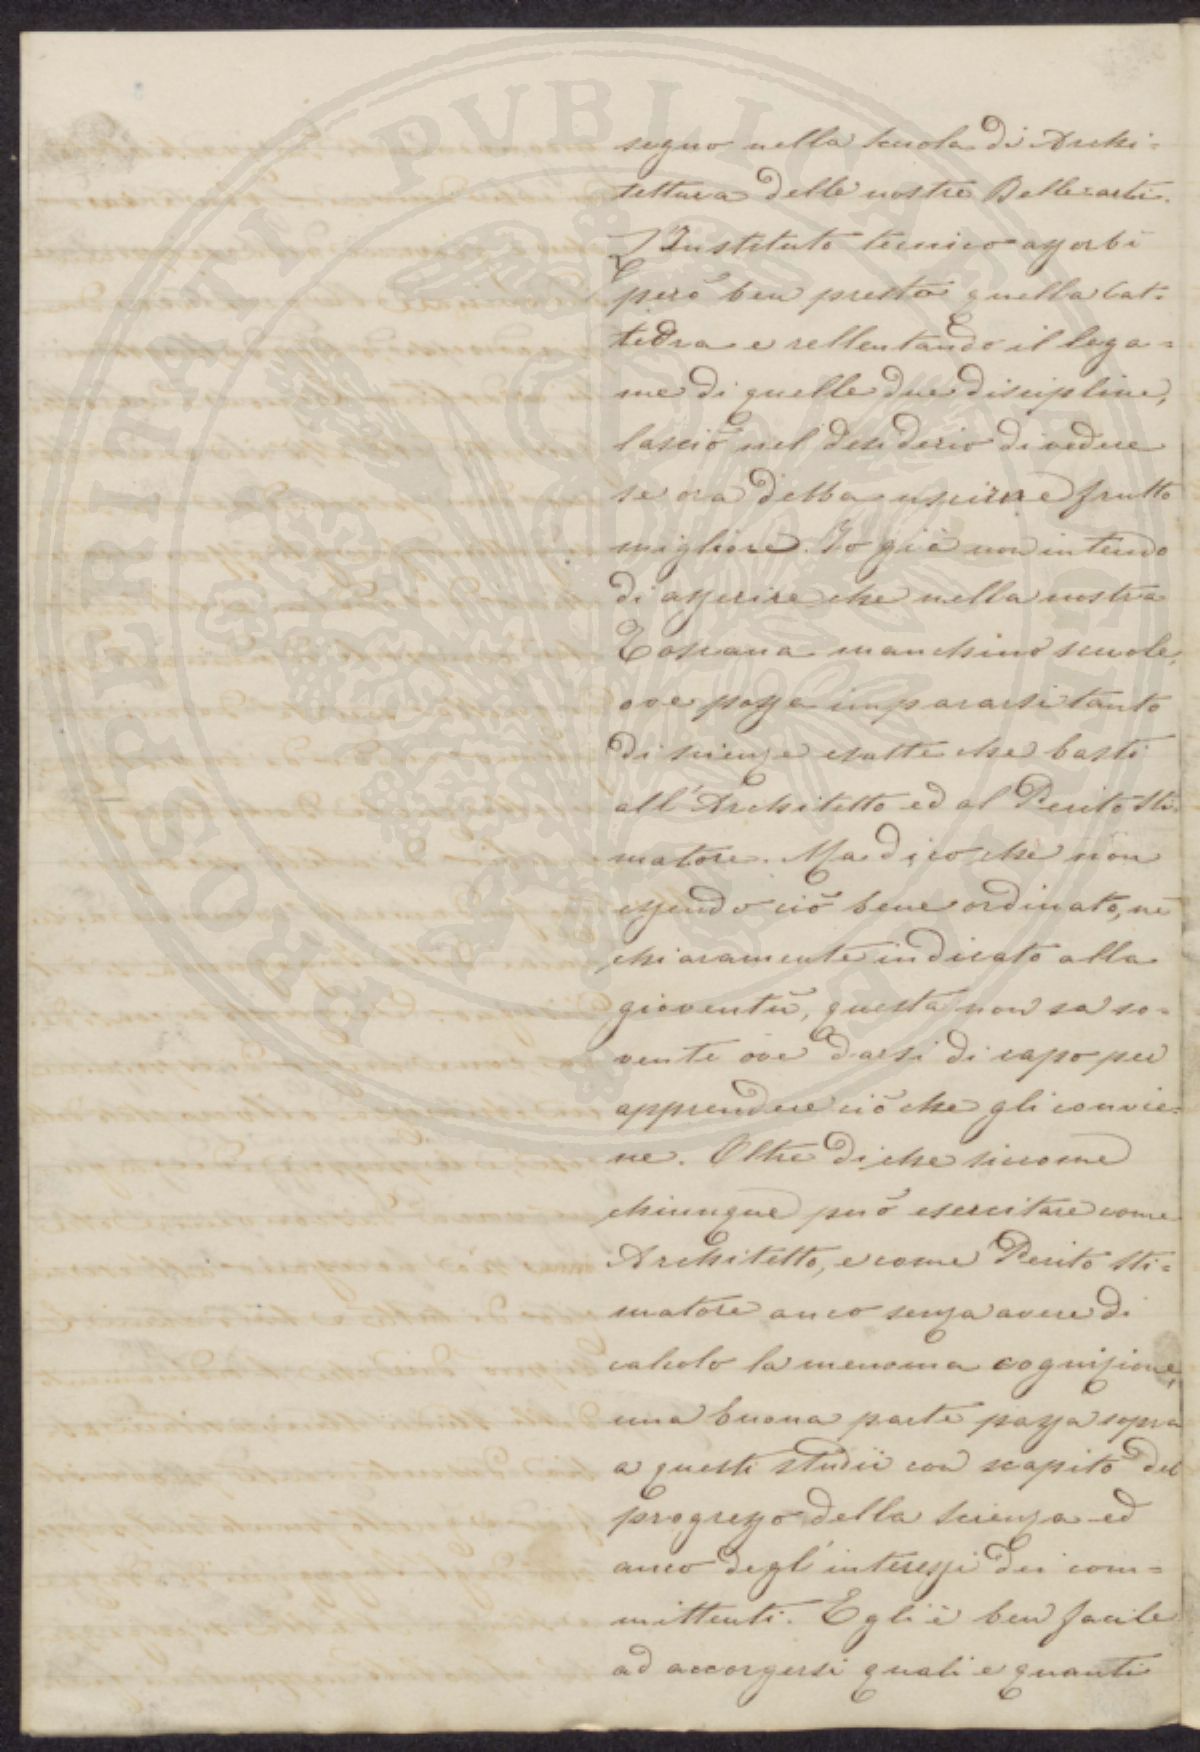 segno nella scuola di Archi=
tettura delle nostre Belle=arti.
L'Instituto tecnico assorbì
però ben presto quella Cat=
tedra e rellentando il lega=
me di quelle due discipline,
lasciò nel desiderio di vedere
se ora debba uscirne frutto
migliore. Io già non intendo
di asserire che nella nostra
Toscana manchino scuole,
ove possa impararsi tanto
di scienze esatte che basti
all'Architetto ed al Perito Sti=
matore. Ma dico che non
essendo ciò bene ordinato, nè
chiaramente indicato alla
gioventù, questa non sa so=
vente ove darsi di capo per
apprendere ciò che gli convie=
ne. Oltre di che siccome
chiunque può esercitare come
Architetto, e come Perito sti=
matore anco senza avere di
calcolo la menoma cognizione,
una buona parte passa sopra
a questi studii con scapito del
progresso della scienza ed
anco degl'interessi dei com=
mittenti. Egli è ben facile
ad accorgersi quali e quanti
PROSPERITATI PVBLICAE